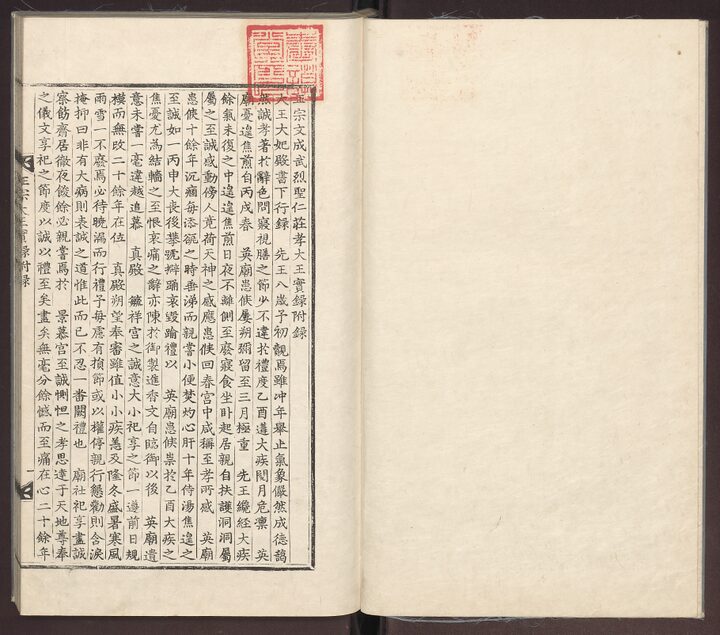 正宗文成武烈聖仁莊孝大王實錄附錄
大王大妃殿書下行錄 先王八歲予初覿焉雖冲年舉止氣象儼然成德藹
然誠孝著於辭色問寢視膳之節少不違於禮度乙酉遘大疾閱月危凜 英
廟憂遑焦煎自丙戌春 英廟患候屢朔彌留至三月極重 先王纔經大疾
餘氣未復之中遑遑焦煎日夜不離側至廢寢食坐卧起居親自扶護洞洞屬
屬之至誠感動傍人竟荷天神之感應患候回春宮中咸稱至孝所感 英廟
患候十餘年沉痼每添㞃之時垂涕而親嘗小便焚灼心肝十年侍湯焦遑之
至誠如一丙申大喪後攀號擗踊哀毀踰禮以 英廟患候祟於乙酉大疾之
焦憂尤為結轖之至恨哀痛之辭亦陳於御製進香文自臨御以後 英廟遺
意未嘗一毫違越追慕 真殿 毓祥宮之誠意大小祀享之節一遵前日規
模而無改二十餘年在位 真殿朔望奉審雖值小小疾恙及隆冬盛暑寒風
雨雪一不廢焉必待曉漏而行禮予每慮有損節或以權停親行懇勸則含淚
掩抑曰非有大病則表誠之道惟此而已不忍一番闕禮也 廟社祀享盡誠
察飭齋居徹夜餕餘必親嘗焉於 景慕宮至誠惻怛之孝思達于天地尊奉
之儀文享祀之節度以誠以禮至矣盡矣無毫分餘憾而至痛在心二十餘年
正宗大王實錄附錄